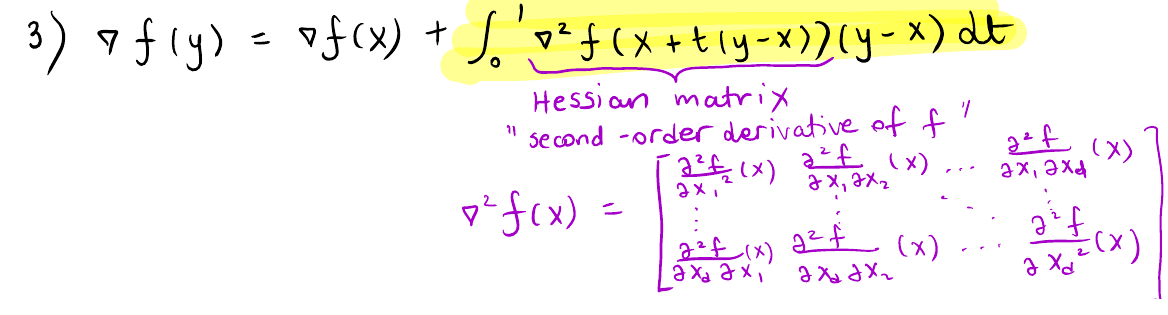 3) ∇f(y) = ∇f(x) + ∫₀¹ ∇²f(x+t(y-x))(y-x) dt
Hessian matrix
"second-order derivative of f"
∇²f(x) = [ ∂²f/∂x₁² (x) ∂²f/∂x₁∂x₂ (x) ... ∂²f/∂x₁∂x_d (x)
⋮ ⋮ ⋱ ⋮
∂²f/∂x_d∂x₁ (x) ∂²f/∂x_d∂x₂ (x) ... ∂²f/∂x_d² (x) ]